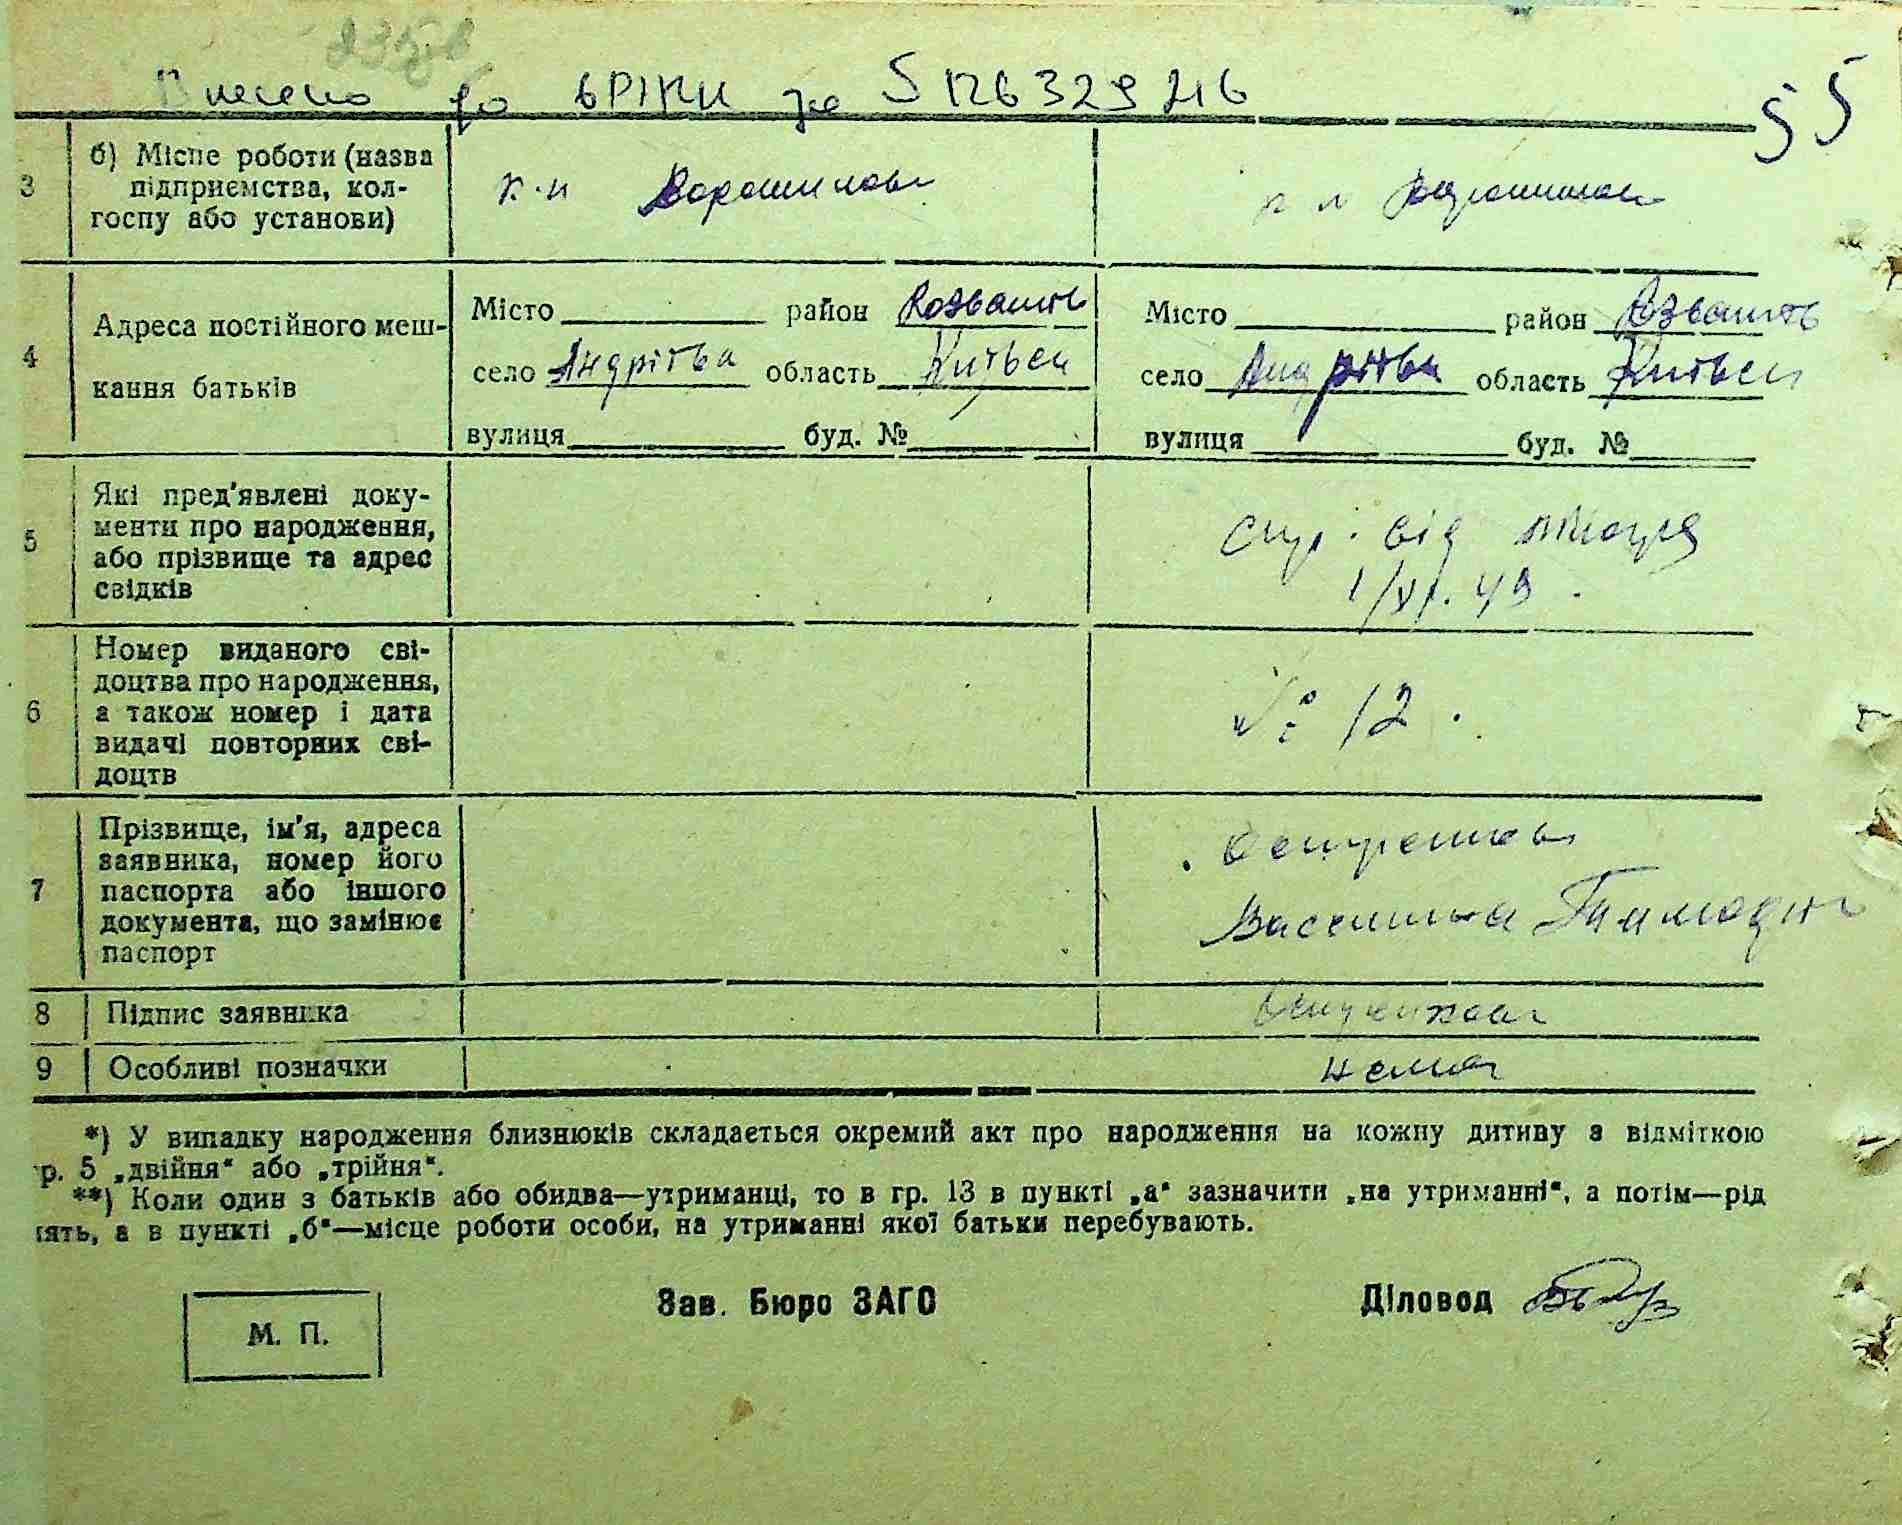 Внесено до ЄРІКИ за
55
3
б) Місце роботи (назва
підприємства, кол-
госпу або установи)
к-п Ворошилова
Ворошилова
4
Адреса постійного меш-
кання батьків
Місто район Розважів
село Андріївка область Київська
вулиця буд. №
Місто район Розважів
село Андріївка область Київська
вулиця буд. №
5
Які пред'явлені доку-
менти про народження,
або прізвище та адрес
свідків
від
1/VI. 49.
6
Номер виданого сві-
доцтва про народження,
а також номер і дата
видачі повторних сві-
доцтв
№ 12.
7
Прізвище, ім'я, адреса
заявника, номер його
паспорта або іншого
документа, що замінює
паспорт
8
Підпис заявника
9
Особливі позначки
нема
*) У випадку народження близнюків складається окремий акт про народження на кожну дитину з відміткою
р. 5 „двійня“ або „трійня“.
**) Коли один з батьків або обидва—утриманці, то в гр. 13 в пункті „а“ зазначити „на утриманні“, а потім—рід
ять, а в пункті „б“—місце роботи особи, на утриманні якої батьки перебувають.
М. П.
Зав. Бюро ЗАГС
Діловод